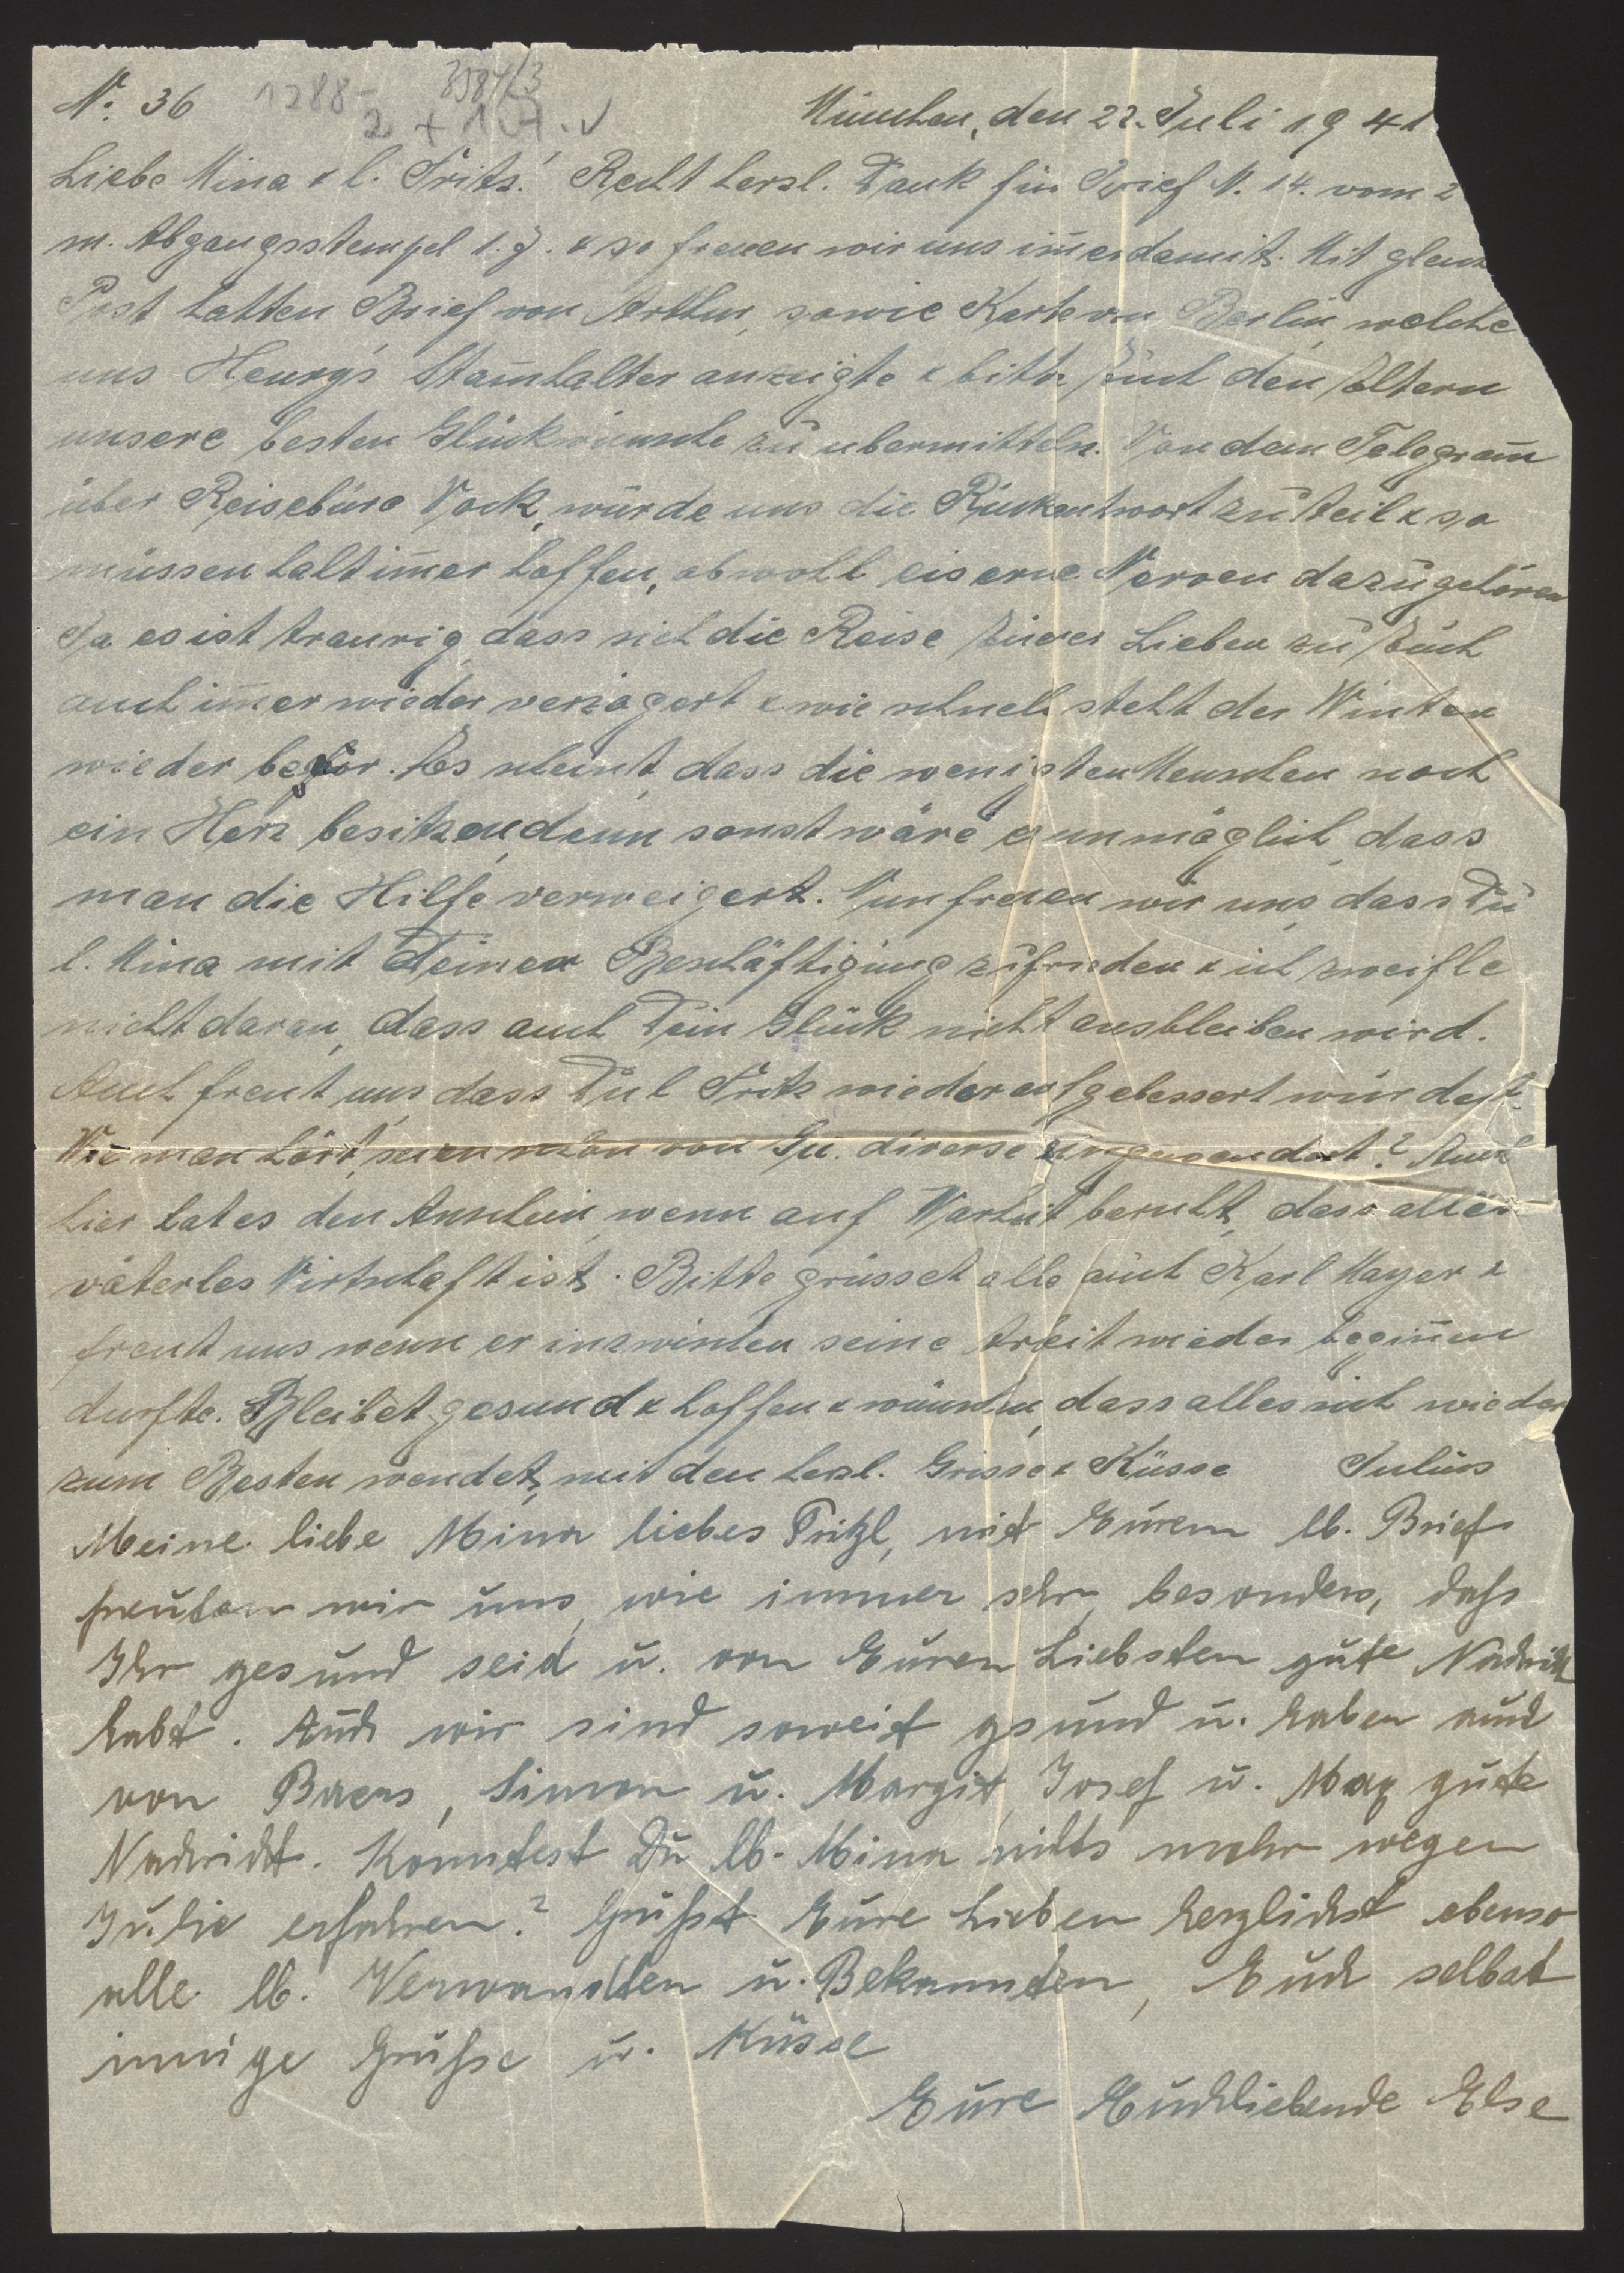 N. 36 1288- 3584/3 München, den 22. Juli 1941
2 + 1
Liebe Mina & l. Fritz! Recht herzl. Dank für Brief N. 14. vom 2
m. Abgangsstempel 1.7. & so freuen wir uns im̄er damit. Mit gleich
Post hatten Brief von Arthur, sowie Karte von Berlin, welche
uns Henry's Stam̄halter anzeigte & bitte Euch den Eltern
unsere besten Glückwünsche zu ubermitteln. Von dem Telegram̄
über Reisebüro Vock, würde uns die Rückantwort zuteil & so
müssen halt im̄er hoffen, obwohl eiserne Nerven dazugehören
Ja es ist traurig dass sich die Reise Eurer Lieben zu Euch
auch im̄er wieder verzögert & wie schnell steht der Winter
wieder bevor. Es scheint, dass die wenigsten Menschen noch
ein Herz besitzen, denn sonst wäre es unmöglich, dass
man die Hilfe verweigert. Nun freuen wir uns, dass Du
l. Mina mit Deiner Beschäftigung zufrieden & ich zweifle
nicht daran, dass auch Dein Glück nicht ausbleiben wird.
Auch freut uns, dass Du l. Fritz wieder aufgebessert wurdest.
Wie man hört, seien schon von Gu. diverse eingewandert? Auch
hier hat es den Anschein, wenn auf Warheit beruht, dass alles
väterles Wirtschaft ist. Bitte grüsset alle auch Karl Mayer &
freut uns wenn er inzwischen seine Arbeit wieder begin̄en
durfte. Bleibet gesund & hoffen & wünschen, dass alles sich wieder
zum Besten wendet, mit den herzl. Grüsse & Küsse Julius
Meine liebe Mina liebes Fritzl, mit Eurem lb. Brief
freuten wir uns, wie immer sehr, besonders, daß
Ihr gesund seid u. von Euren Liebsten gute Nachricht
habt. Auch wir sind soweit gsund u. haben auch
von Baers, Simon u. Margit, Josef u. Max gute
Nachricht. Konntest Du lb. Mina nichts mehr wegen
Julie erfahren? Grüßt Eure Lieben herzlichst ebenso
alle lb. Verwandten u. Bekannten, Euch selbst
innige Grüße u. Küsse
Eure Euchliebende Else